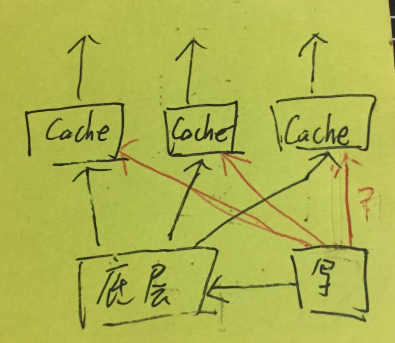 Cache Cache Cache
?
底层 写